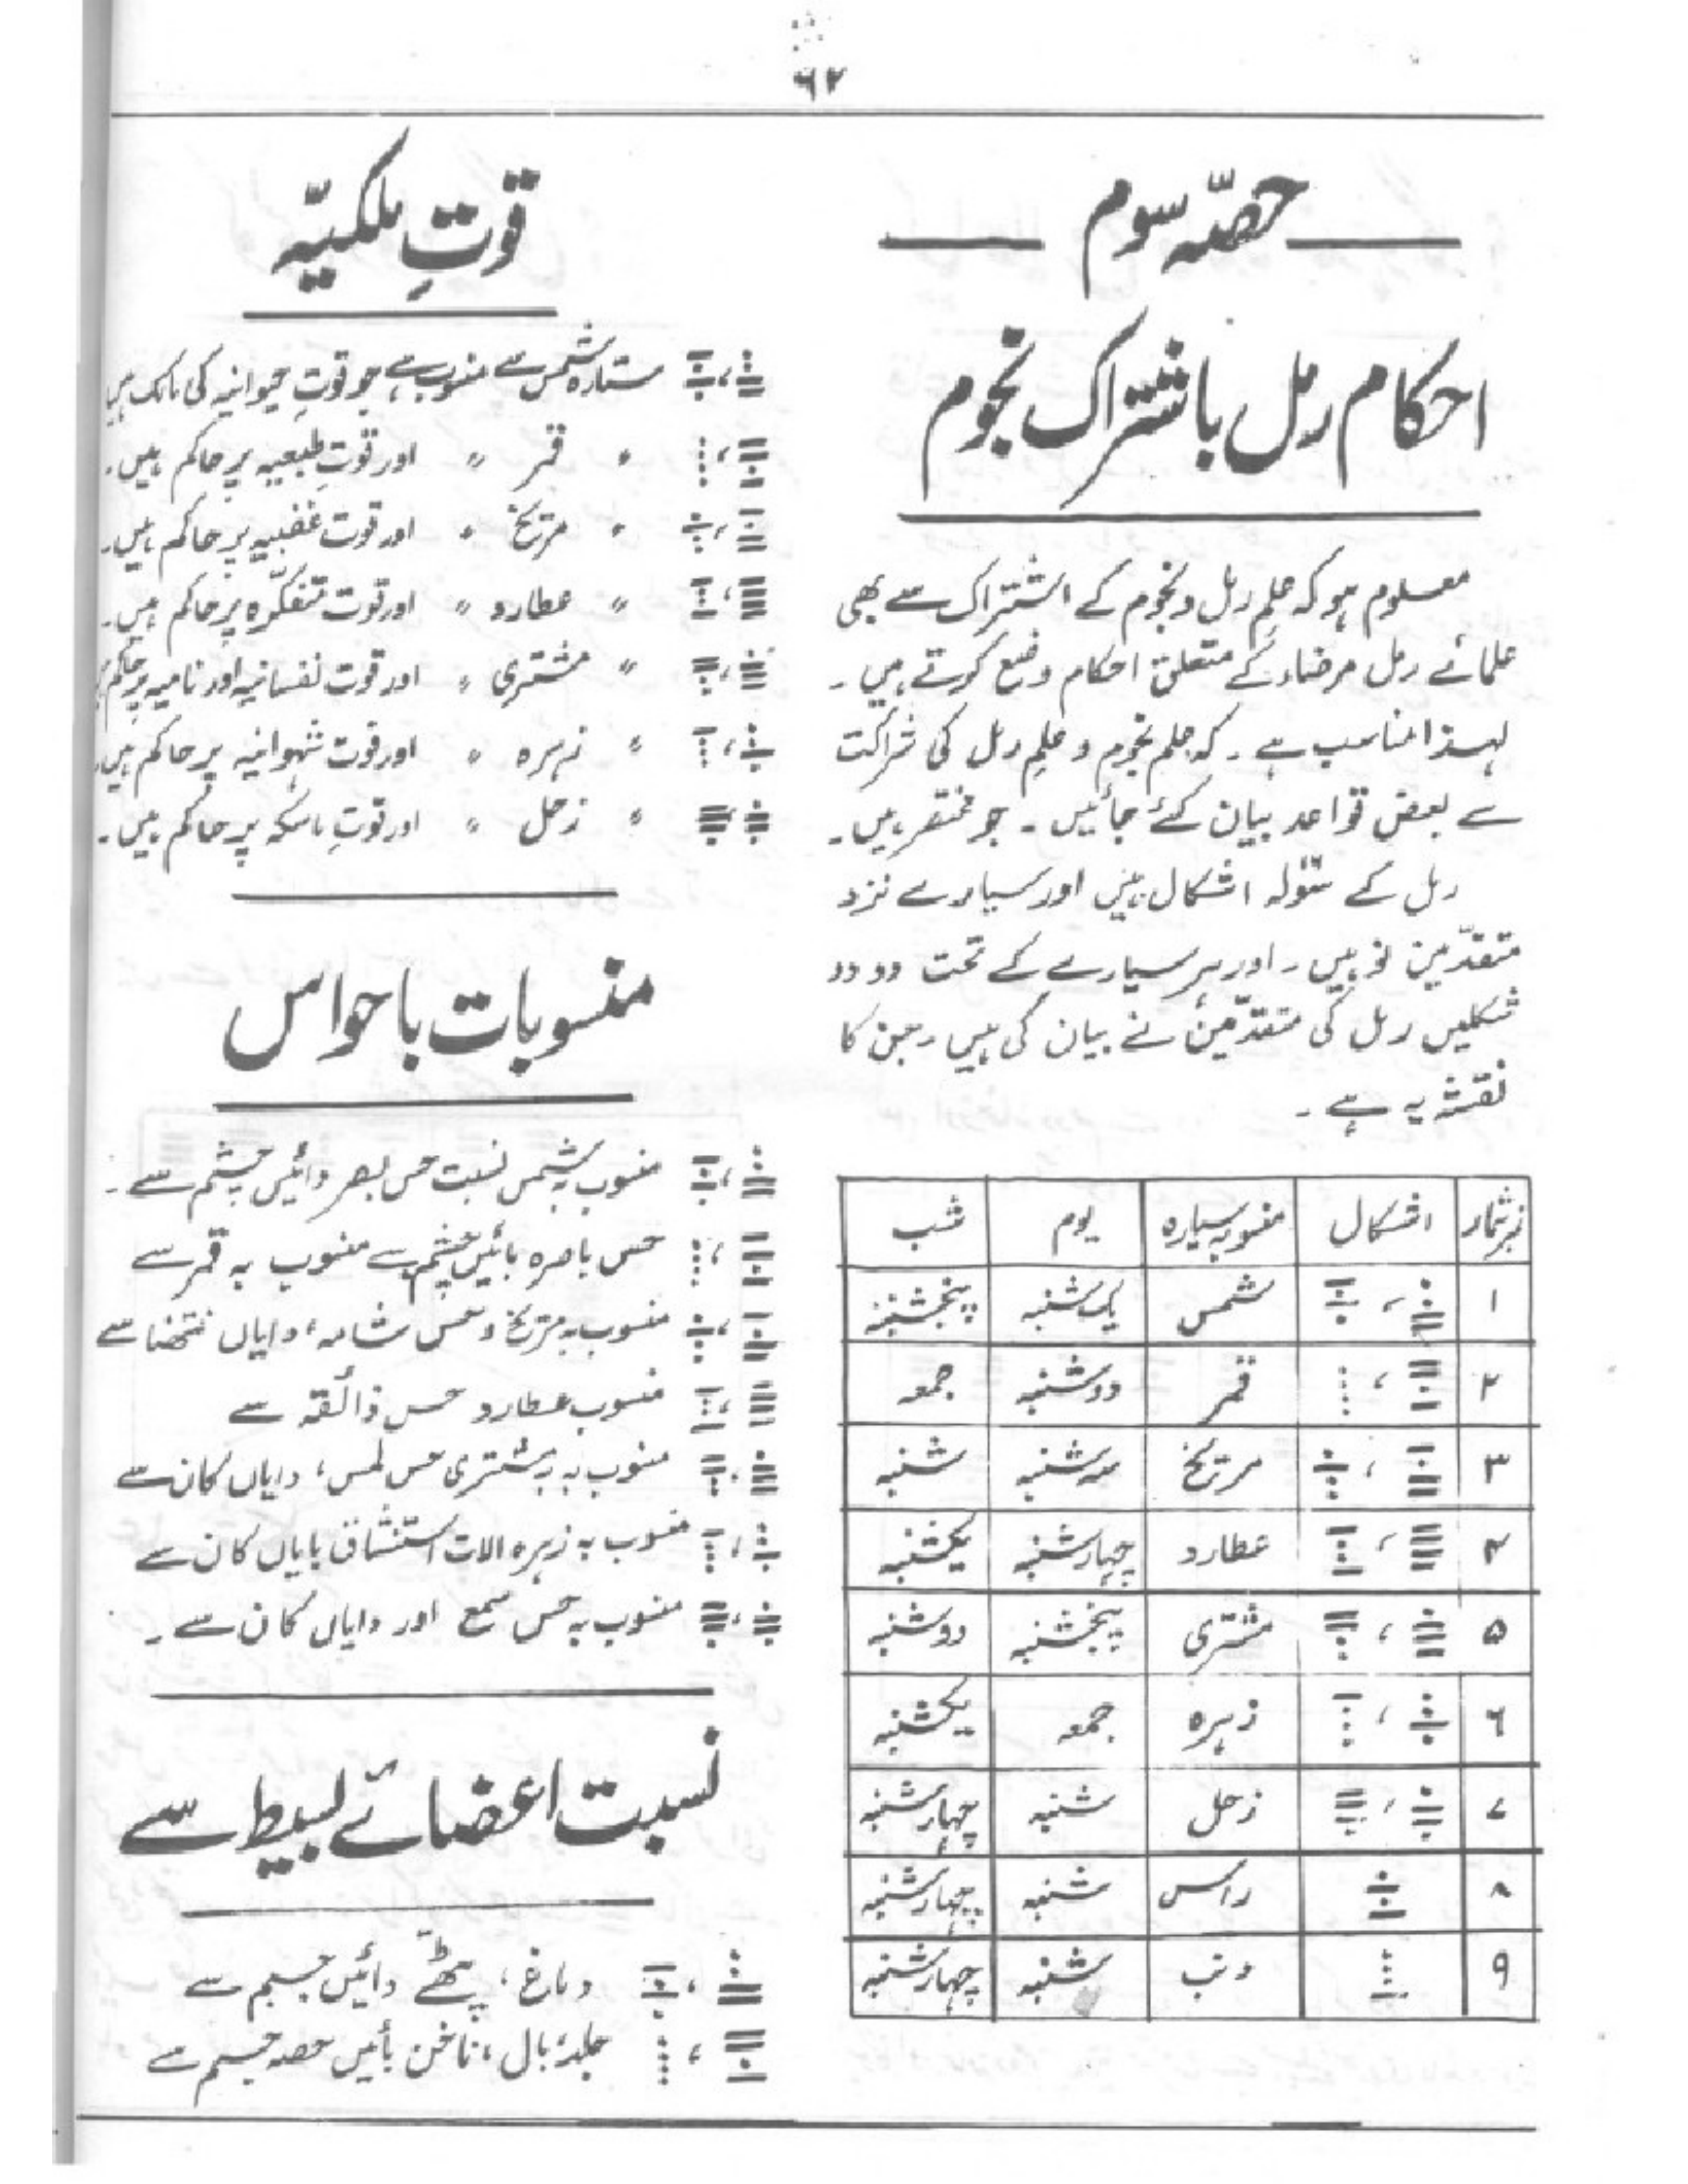 ۶۲
حصّہ سوم
احکام رمل باشتراک نجوم
معلوم ہو کہ علمِ رمل و نجوم کے اشتراک سے بھی
علمائے رمل مرضاء کے متعلق احکام وضع کرتے ہیں ۔
لہذا مناسب ہے ۔ کہ علم نجوم و علمِ رمل کی شراکت
سے بعض قواعد بیان کئے جائیں ۔ جو مختصر ہیں ۔
رمل کے سولہ اشکال ہیں اور سیارے نزد
متقدّمین نو ہیں ۔ اور ہر سیارے کے تحت دو دو
شکلیں رمل کی متقدّمین نے بیان کی ہیں ۔ جن کا
نقشہ یہ ہے ۔
نمبر شمار اشکال منسوبہ سیارہ یوم شب
۱ شمس یک شنبہ پنجشنبہ
۲ قمر دوشنبہ جمعہ
۳ مریخ سہ شنبہ شنبہ
۴ عطارد چہار شنبہ یکشنبہ
۵ مشتری پنجشنبہ دوشنبہ
۶ زہرہ جمعہ یکشنبہ
۷ زحل شنبہ چہار شنبہ
۸ راس شنبہ چہار شنبہ
۹ ذنب شنبہ چہار شنبہ
قوتِ ملکیّہ
ستارہ شمس سے منسوب ہے جو قوتِ حیوانیہ کی مالک ہیں
〃 قمر 〃 اور قوتِ طبعیہ پر حاکم ہیں ۔
〃 مریخ 〃 اور قوت غضبیہ پر حاکم ہیں ۔
〃 عطارد 〃 اور قوت متفکّرہ پر حاکم ہیں ۔
〃 مشتری 〃 اور قوت نفسانیہ اور نامیہ پر حاکم
〃 زہرہ 〃 اور قوت شہوانیہ پر حاکم ہیں ۔
〃 زحل 〃 اور قوتِ ماسکہ پر حاکم ہیں ۔
منسوبات باحواس
منسوب بہ شمس نسبت حس بصر دائیں چشم سے ۔
حس باصرہ بائیں چشم سے منسوب بہ قمر سے
منسوب بہ مریخ و حس شامہ ، دایاں نتھنا سے
منسوب عطارد حس ذائقہ سے
منسوب بہ مشتری حس لمس ، دایاں کان سے
منسوب بہ زہرہ الات استنشاق بایاں کان سے
منسوب بہ حس سمع اور دایاں کان سے ۔
نسبت اعضائے بسیط سے
دماغ ، پٹھے دائیں جسم سے
جلد، بال ، ناخن بائیں حصہ جسم سے